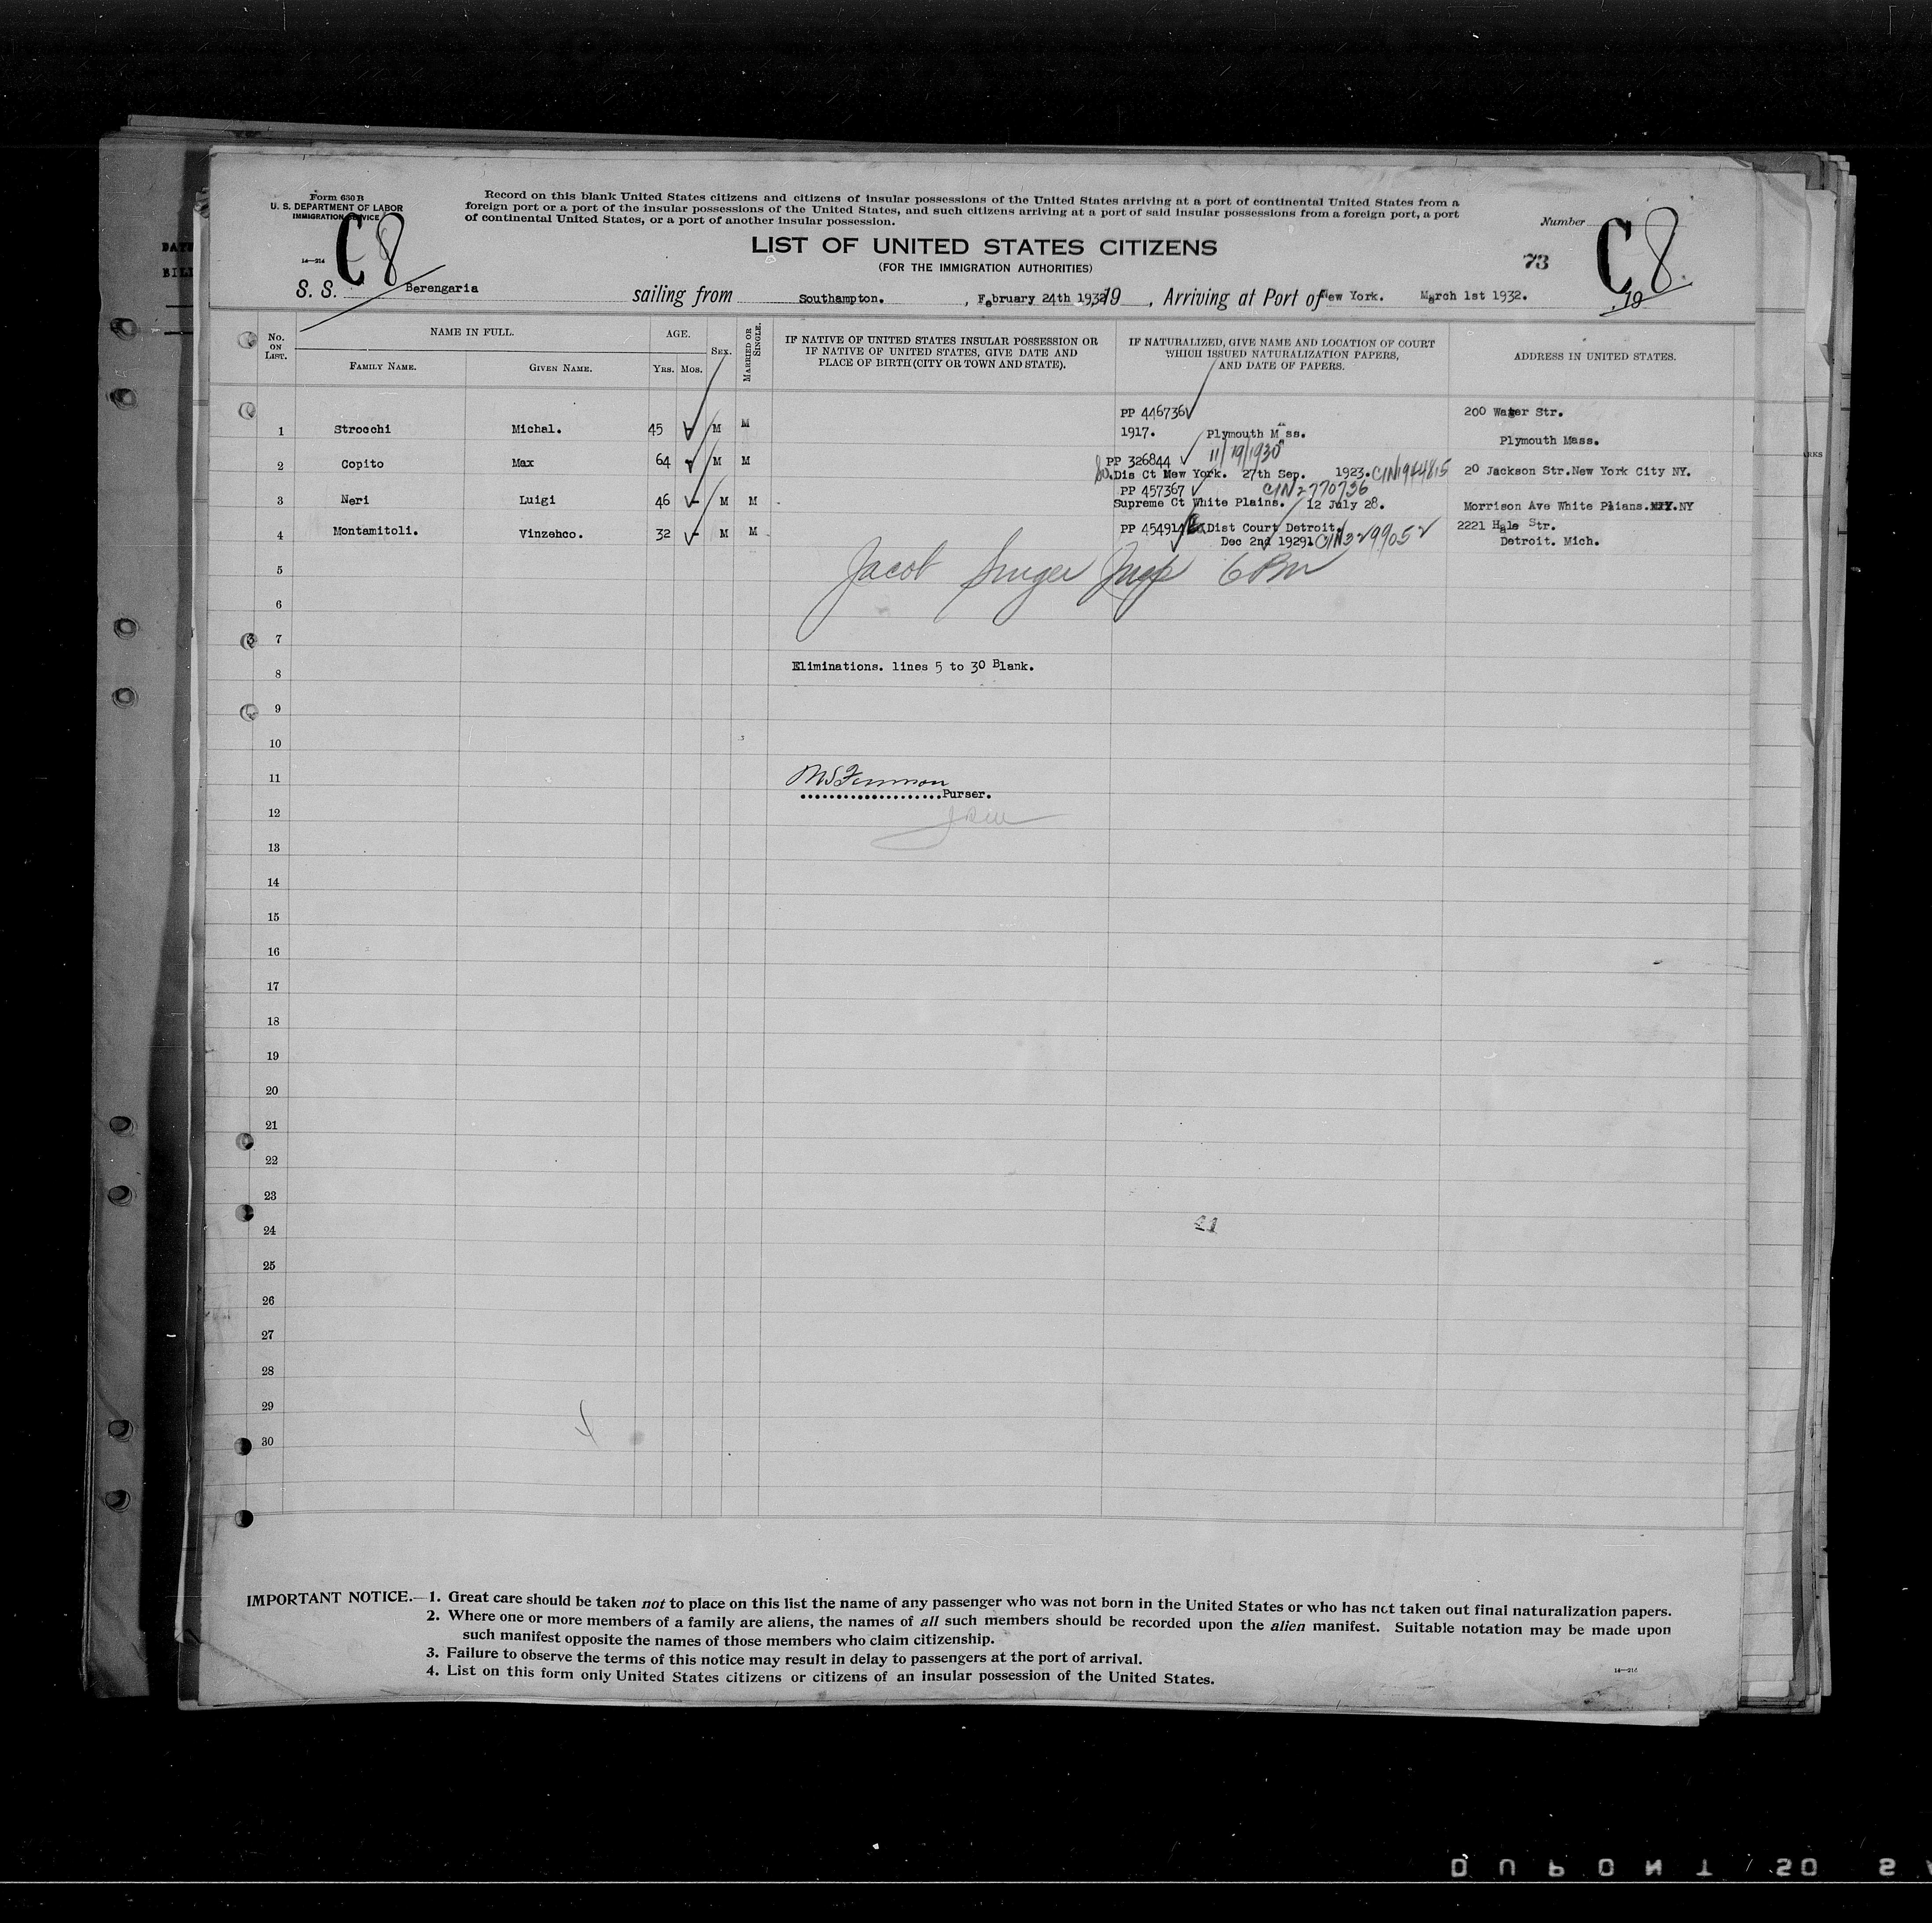 Form 630 B
U. S. DEPARTMENT OF LABOR
IMMIGRATION SERVICE
14—214
C 8
Record on this blank United States citizens and citizens of insular possessions of the United States arriving at a port of continental United States from a
foreign port or a port of the insular possessions of the United States, and such citizens arriving at a port of said insular possessions from a foreign port, a port
of continental United States, or a port of another insular possession.
LIST OF UNITED STATES CITIZENS
(FOR THE IMMIGRATION AUTHORITIES)
Number
73
C 8
10
S. S. Berengaria sailing from Southampton. , February 24th 1932 19 , Arriving at Port of New York. March 1st 1932.
No. ON LIST.
NAME IN FULL.
FAMILY NAME.
GIVEN NAME.
AGE.
YRS. MOS.
SEX.
MARRIED OR SINGLE.
IF NATIVE OF UNITED STATES INSULAR POSSESSION OR
IF NATIVE OF UNITED STATES, GIVE DATE AND
PLACE OF BIRTH (CITY OR TOWN AND STATE).
IF NATURALIZED, GIVE NAME AND LOCATION OF COURT
WHICH ISSUED NATURALIZATION PAPERS,
AND DATE OF PAPERS.
ADDRESS IN UNITED STATES.
PP 446736 200 Water Str.
1 Strocchi Michal. 45 M M 1917. Plymouth Mass. Plymouth Mass.
11/19/1930
2 Copito Max 64 M M PP 326844
So. Dis Ct New York. 27th Sep. 1923. C/N 1944815 20 Jackson Str.New York City NY.
PP 457367 C/N 2770736
3 Neri Luigi 46 M M Supreme Ct White Plains. 12 July 28. Morrison Ave White Plians. NY
4 Montamitoli. Vinzehco. 32 M M PP 454914 Dist Court Detroit. 2221 Hale Str.
Dec 2nd 19291 C/N 3299052 Detroit. Mich.
5
Jacob Singer Insp
6
7
Eliminations. lines 5 to 30 Blank.
8
9
10
11
Purser.
12
13
14
15
16
17
18
19
20
21
22
23
24
25
26
27
28
29
30
IMPORTANT NOTICE.—1. Great care should be taken not to place on this list the name of any passenger who was not born in the United States or who has not taken out final naturalization papers.
2. Where one or more members of a family are aliens, the names of all such members should be recorded upon the alien manifest. Suitable notation may be made upon
such manifest opposite the names of those members who claim citizenship.
3. Failure to observe the terms of this notice may result in delay to passengers at the port of arrival.
4. List on this form only United States citizens or citizens of an insular possession of the United States.
14—214
DUPONT